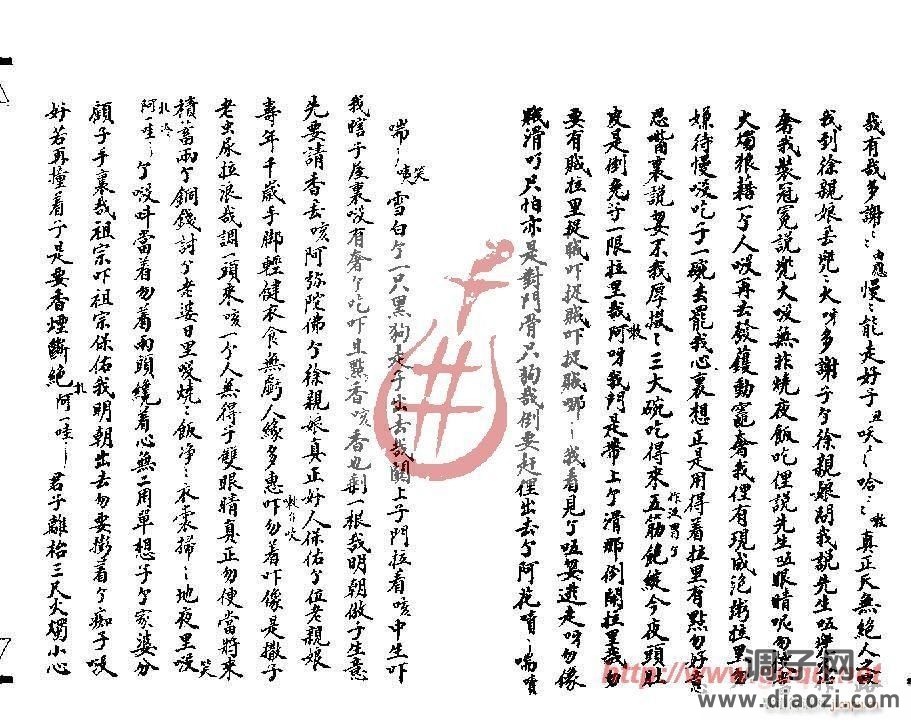 哉有哉多謝〻内應慢〻能走好子丑咲〻哈〻真正天無絕人之路
我到徐親娘去兜〻大呀多謝子个徐親娘問我說先生唔兜來
奢我裝冠冕說兜大哎無非燒夜飯吃俚說先生唔眼睛呢勿
火燭狼藉一个人哎再去發鑊動竈奢我俚有現成泡粥拉里勿
嫌待慢哎吃子一碗去罷我心裏想正是用得着拉里有點勿好意
思嘴裏說要不我厚摋〻三大碗吃得來五筋飽綻今夜頭肚
皮是倒免子一限拉里哉阿呀我門是帶上个滑那倒開拉里哉勿
要有賊拉里捉賊吓捉賊吓捉賊哪〻我看見个唔要逃走呀勿像
賊滑吖只怕亦是對門骨只狗哉倒要赶俚出去个阿花嘖〻喘嘖
喘〻嘖笑雪白个一只黑狗走子出去哉關上子門拉看咳中生吓
我瞎子座裏哎有奢个吃吓且點香咳香也剩一根哉明朝做子生意
先要請香去咳阿彌陀佛个徐親娘真正好人保佑个位老親娘
壽年千歲手脚輕健衣食無虧人緣多惠吓勿着吓像是撒子
老虫尿拉浪哉調一頭來咳一个人無得子雙眼睛真正勿便當將來
積蓄兩个銅錢討个老婆日里哎燒〻飯净〻衣裳掃〻地夜里哎
阿一哇〻个哎呌當着勿着兩頭纔着心無二用單想子个家婆分
顧子手裏哉祖宗吓祖宗保佑我明朝出去勿要掽着个痴子哎
好若再撞着子是要香煙斷絕阿一哇〻君子離枱三尺火燭小心
调子网
diaozi.com
www.diaozi.com